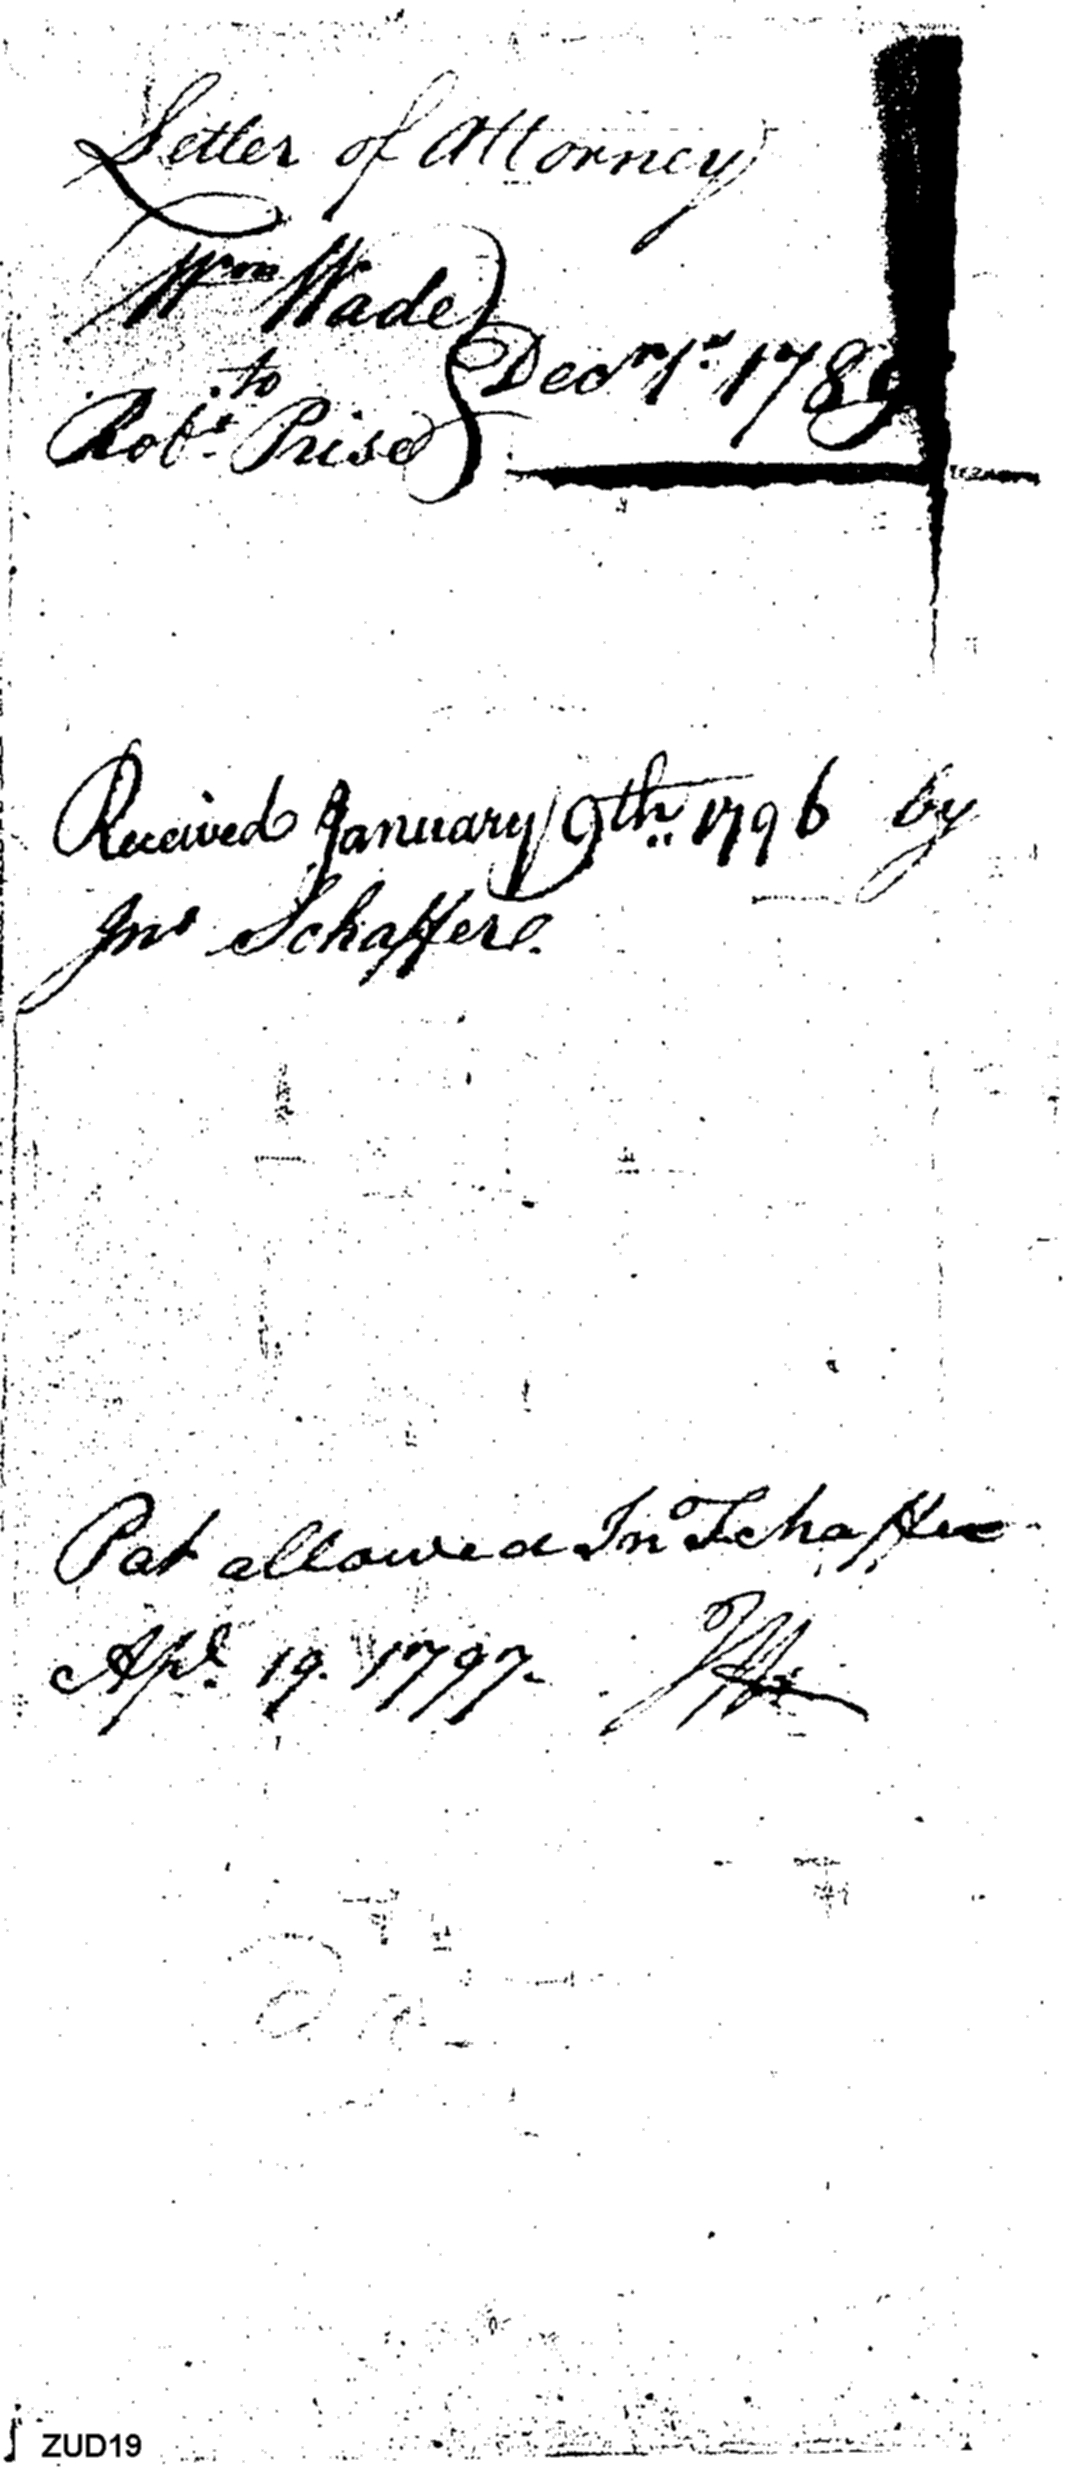 Letter of Attorney
Wm Wade
to
Robt. Prise
Decr 1st 1789
Received January 9th 1796 by
Jno Schaffer.
Pat allowed Jno Schaffer
Apl. 19. 1797.
ZUD19